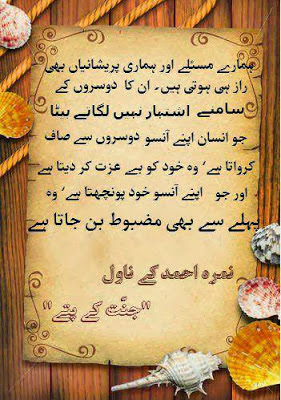 ہمارے مسئلے اور ہماری پریشانیاں بھی
راز ہی ہوتی ہیں۔ ان کا دوسروں کے
سامنے اشتہار نہیں لگاتے بیٹا
جو انسان اپنے آنسو دوسروں سے صاف
کرواتا ہے٬ وہ خود کو بے عزت کر دیتا ہے
اور جو اپنے آنسو خود پونچھتا ہے٬ وہ
پہلے سے بھی مضبوط بن جاتا ہے
نمرہ احمد کے ناول
"جنّت کے پتے"